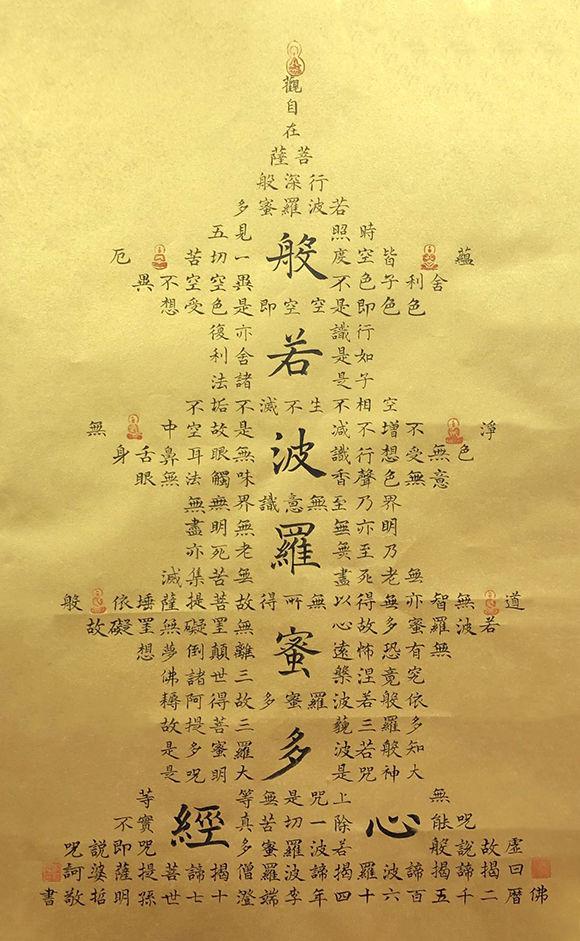 觀
自
在
菩薩
行深般
若波羅蜜多
時照見五
蘊皆空度一切苦厄
舍利子色不異空空不異
色色即是空空即是色受想
行識亦復
如是舍利
子是諸法
空相不生不滅不垢不
淨不增不減是故空中無
色無受想行識無眼耳鼻舌身
意無色聲香味觸法無眼
界乃至無意識界無無
明亦無無明盡
乃至無老死亦
無老死盡無苦集滅
道無智亦無得以無所得故菩提薩埵依般
若波羅蜜多故心無罣礙無罣礙故
無有恐怖遠離顛倒夢想
究竟涅槃三世諸佛
依般若波羅蜜多故得阿耨
多羅三藐三菩提故
知般若波羅蜜多是
大神咒是大明咒是
無上咒是無等等
咒能除一切苦真實不
虛故說般若波羅蜜多咒即說咒
曰揭諦揭諦波羅揭諦波羅僧揭諦菩提薩婆訶
佛曆二千五百六十四年李端澄七十世孫明哲敬書
般若波羅蜜多
心經